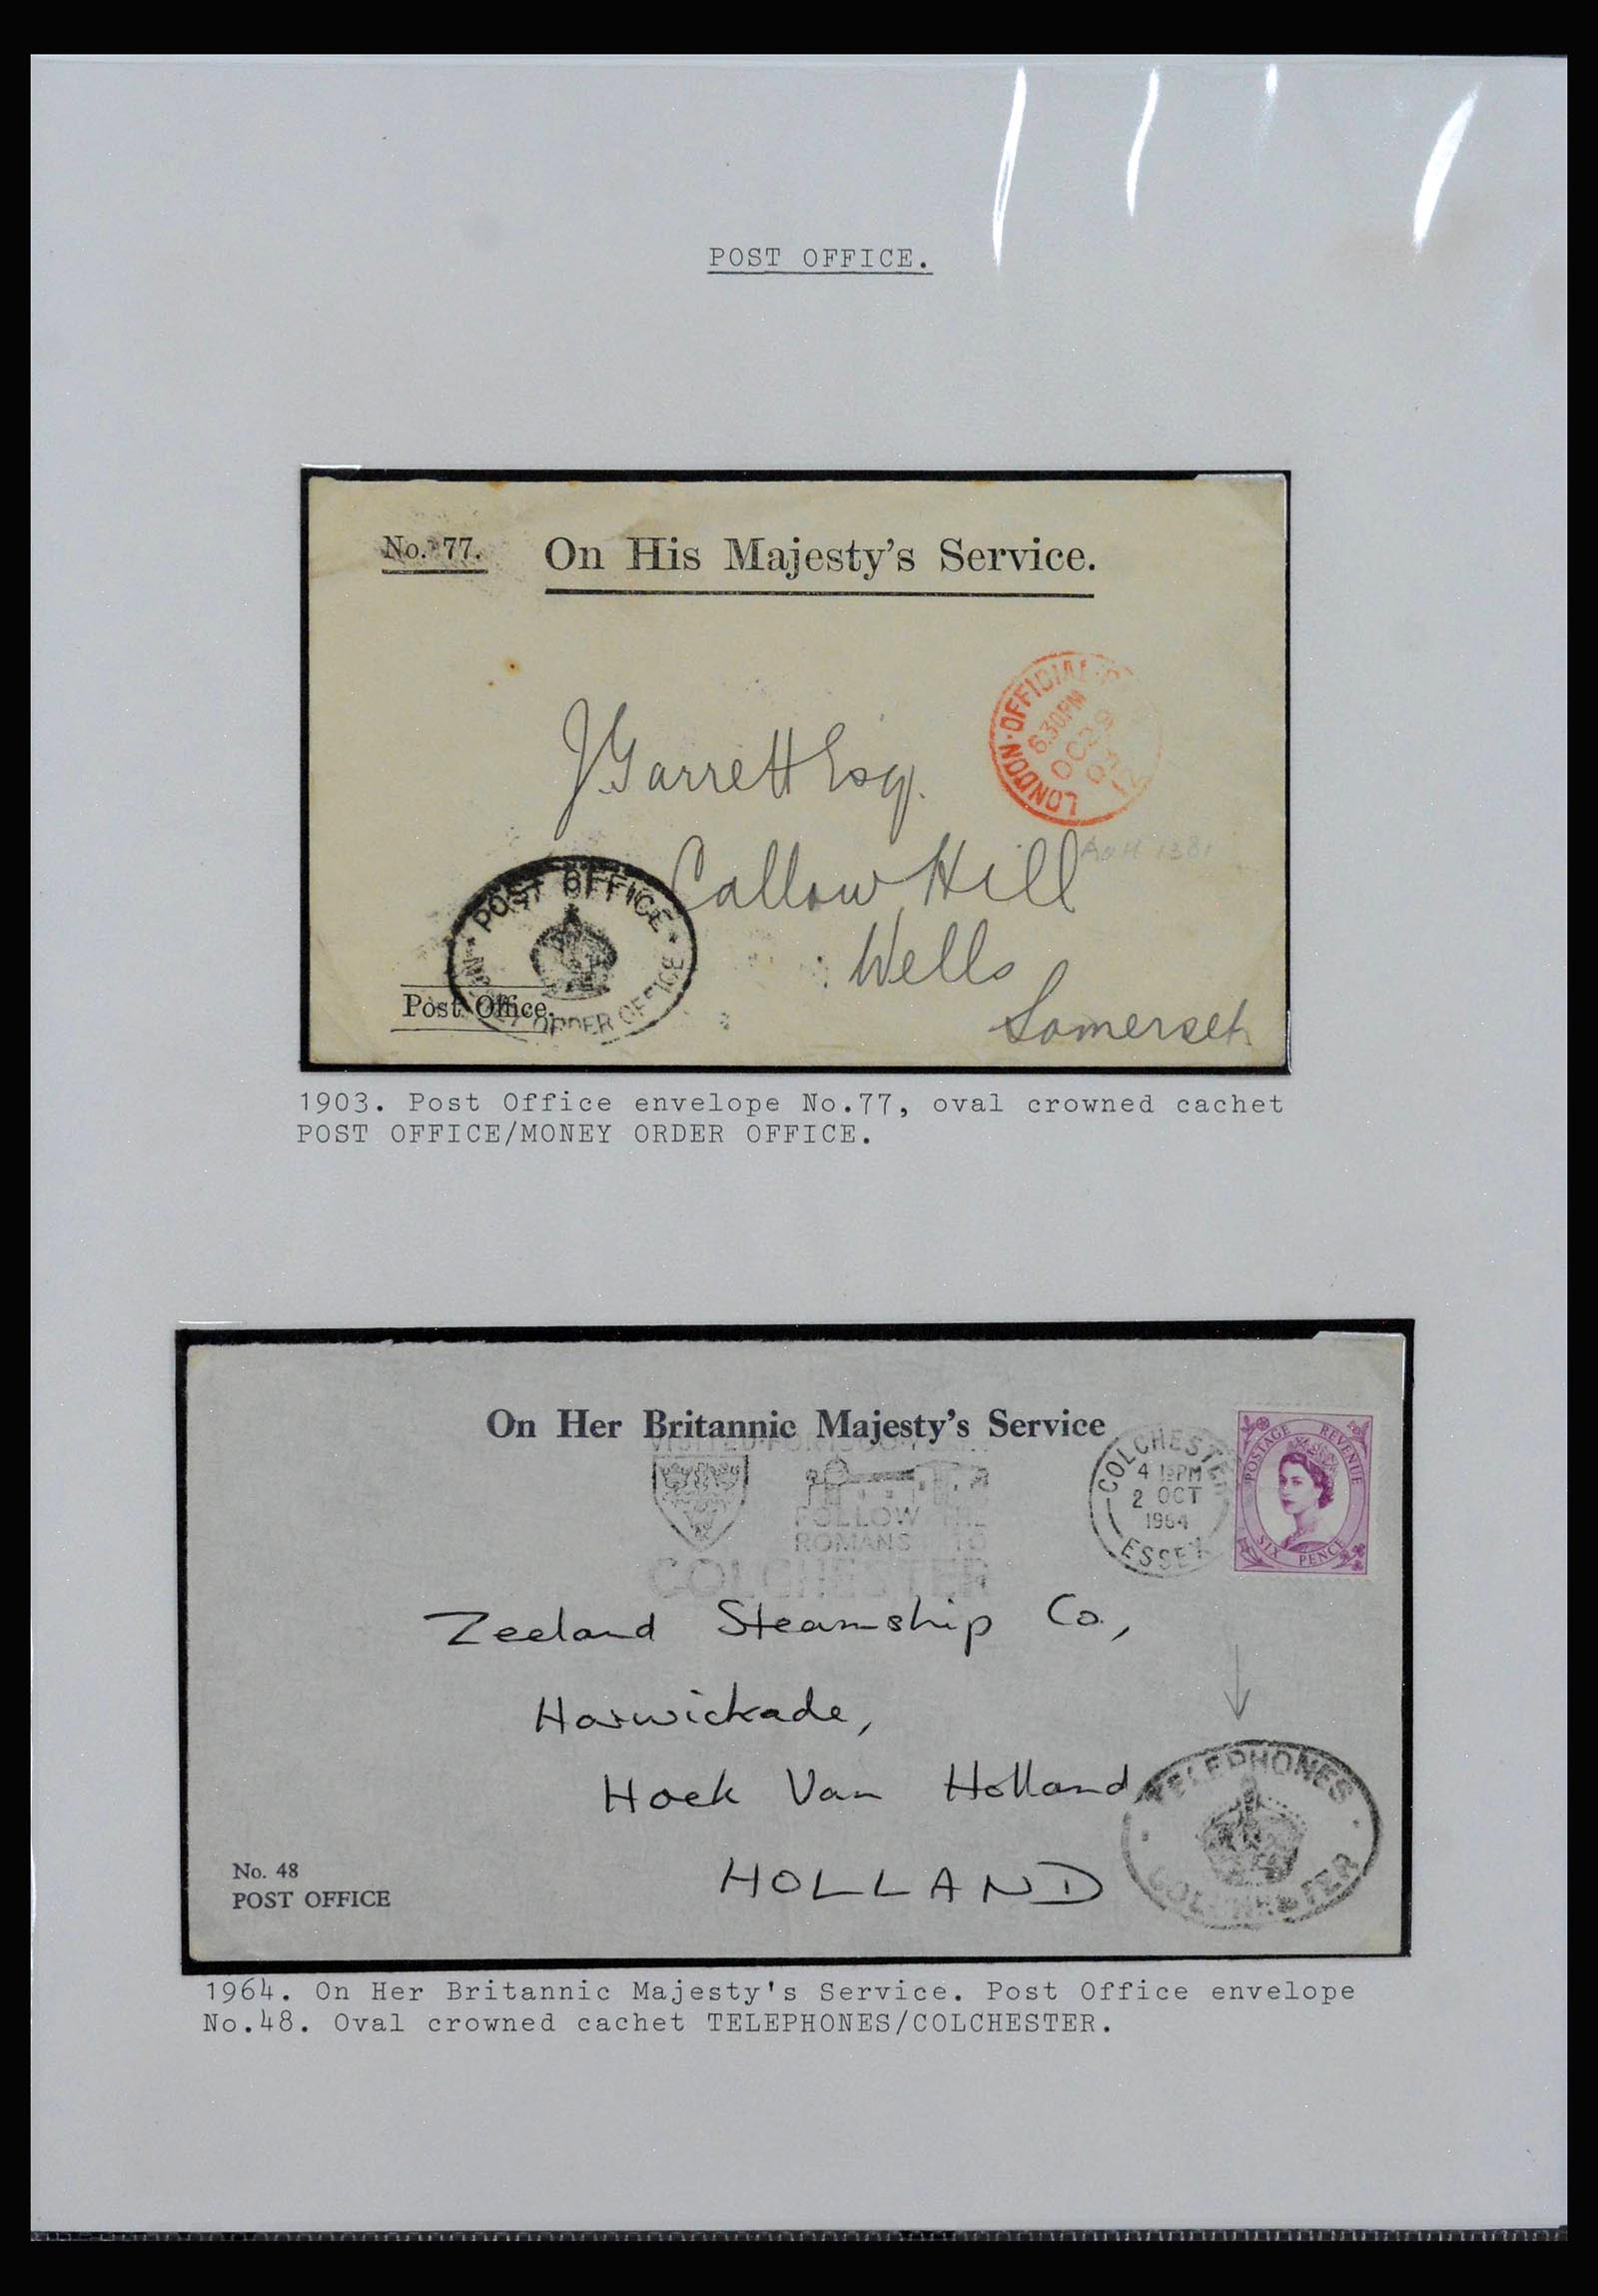 POST OFFICE.
No. 77.
On His Majesty's Service.
LONDON · OFFICIAL
6.30PM
OC 29
03
J Garrett Esq.
Callow Hill
Wells
Somerset
POST OFFICE
ORDER OFFICE
Post Office.
1903. Post Office envelope No.77, oval crowned cachet
POST OFFICE/MONEY ORDER OFFICE.
On Her Britannic Majesty's Service
FOLLOW THE
ROMANS TO
COLCHESTER
COLCHESTER
4 15PM
2 OCT
1964
ESSEX
POSTAGE REVENUE
SIX PENCE
Zeeland Steamship Co.,
Harwickade,
Hoek Van Holland
HOLLAND
TELEPHONES
COLCHESTER
No. 48
POST OFFICE
1964. On Her Britannic Majesty's Service. Post Office envelope
No.48. Oval crowned cachet TELEPHONES/COLCHESTER.